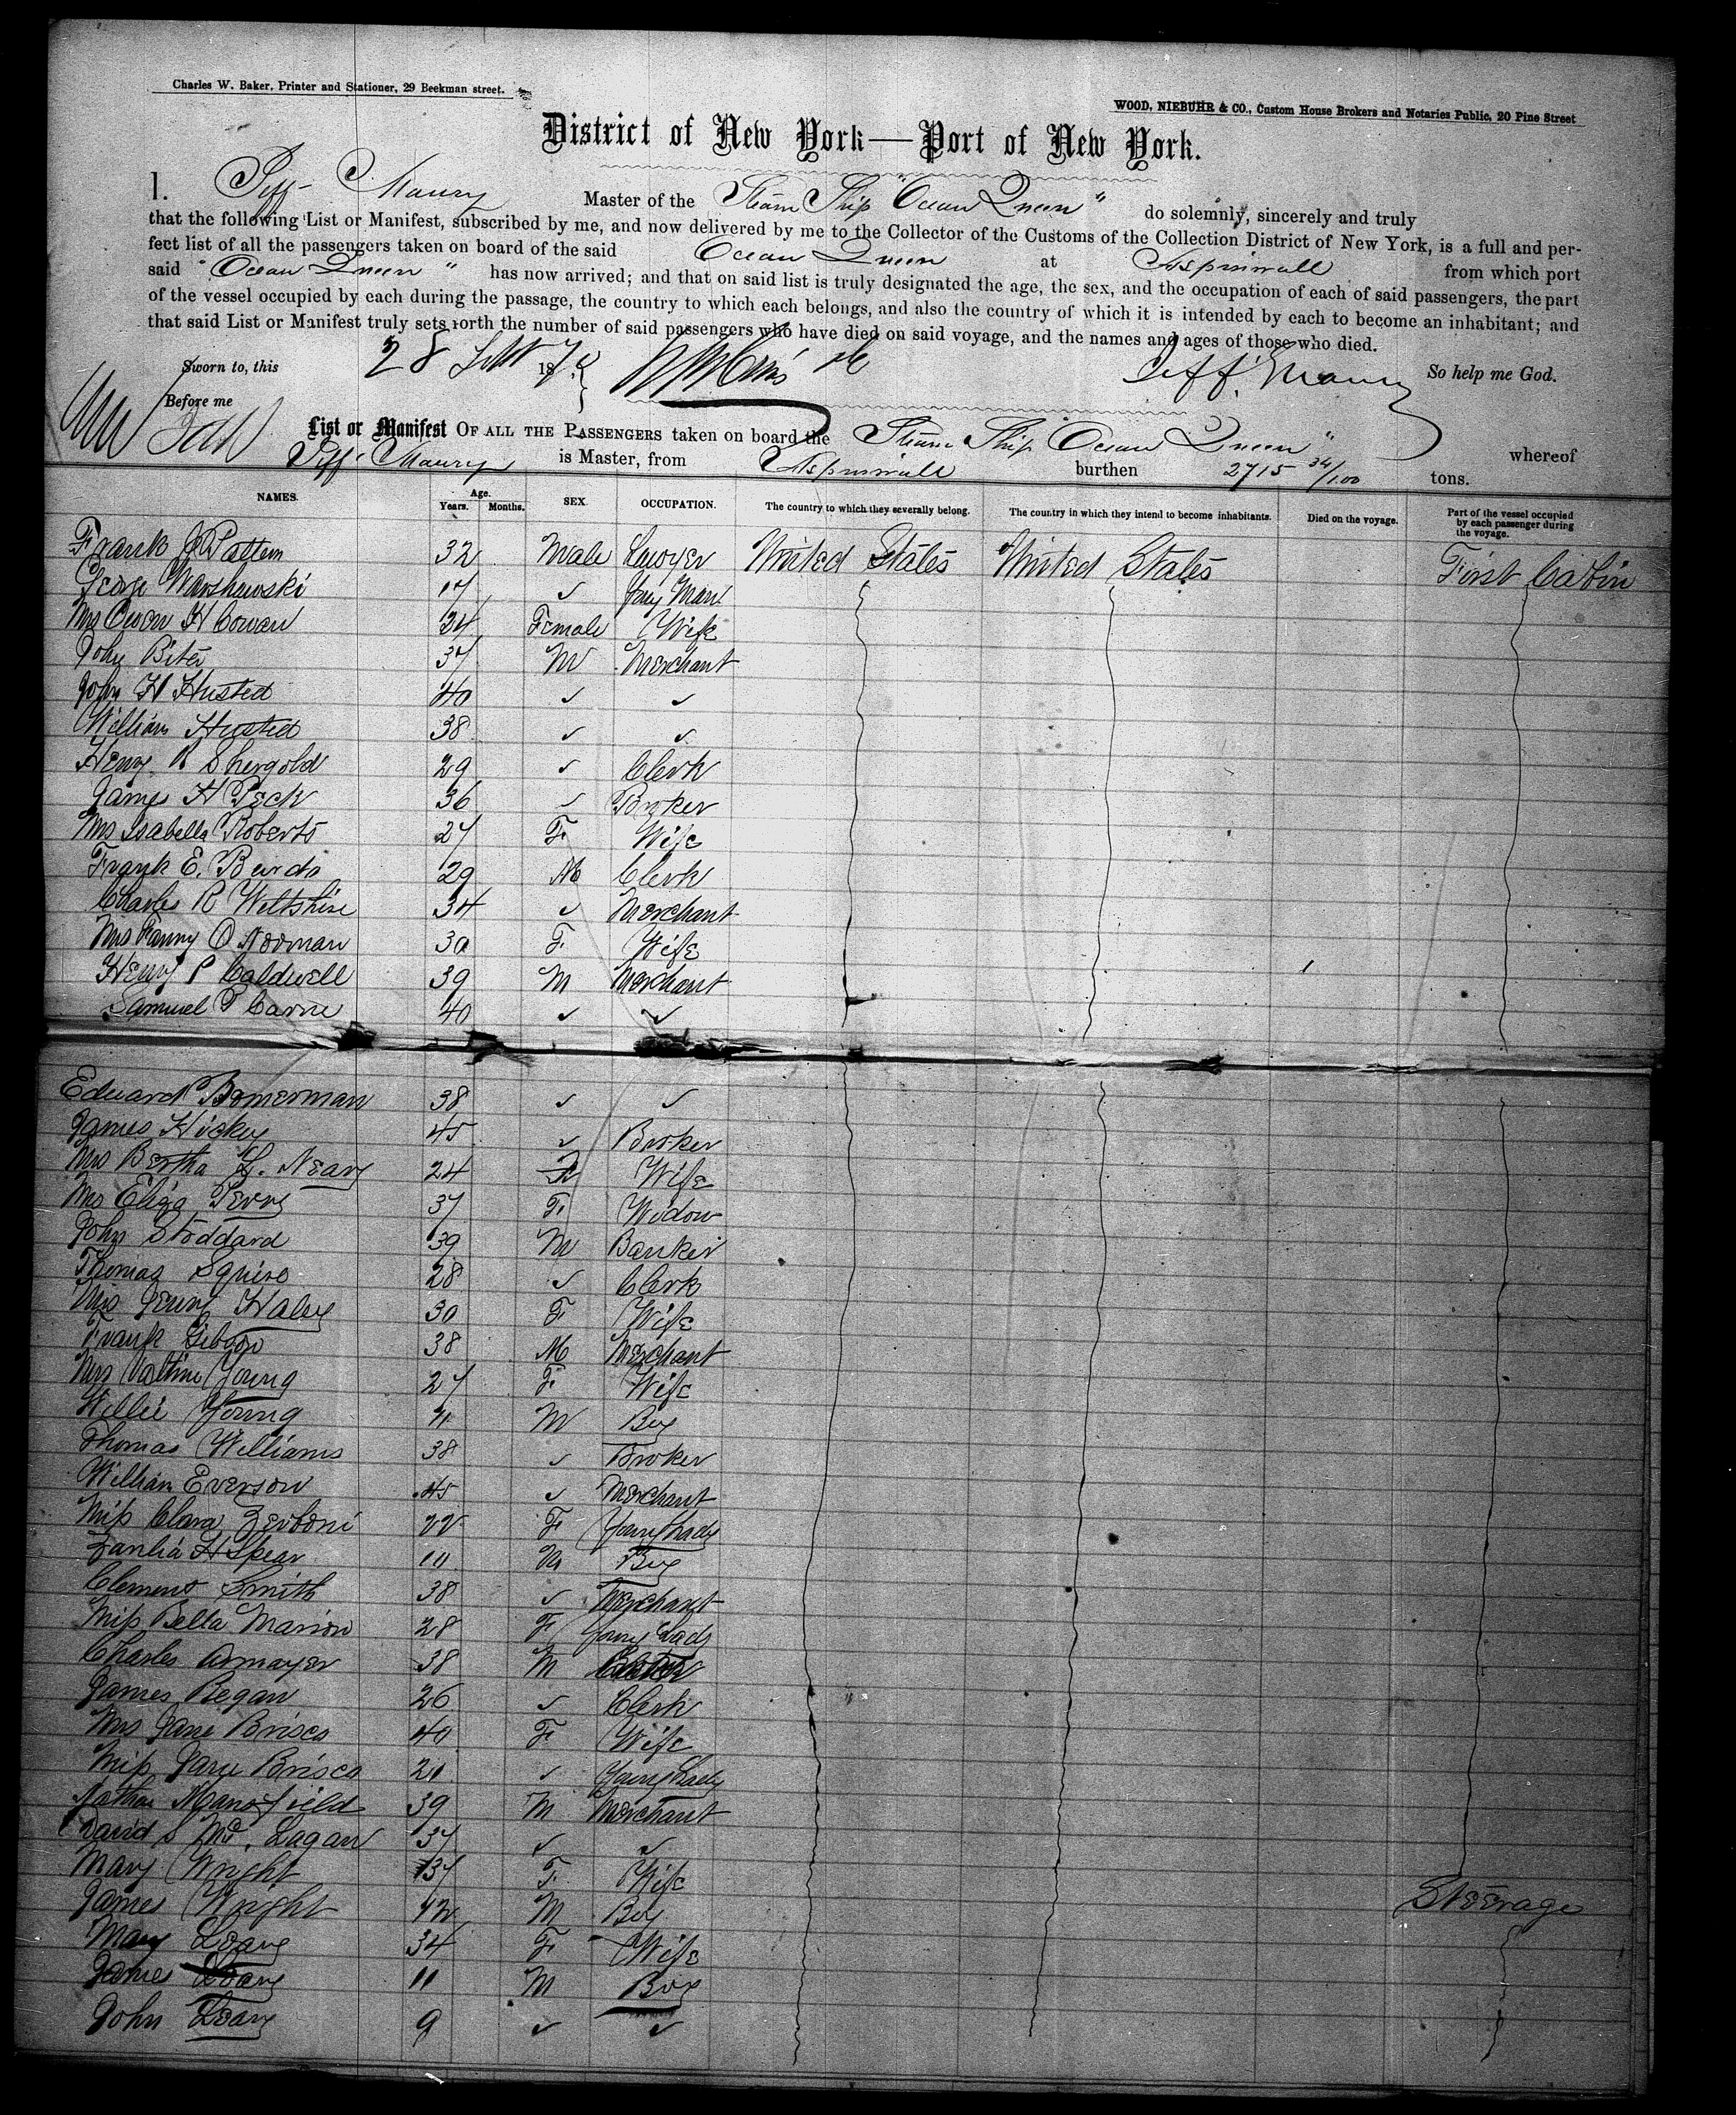 Charles W. Baker, Printer and Stationer, 29 Beekman street.
WOOD, NIEBUHR & CO., Custom House Brokers and Notaries Public, 20 Pine Street
District of New York—Port of New York.
I. Jeff Maury Master of the Steam Ship "Ocean Queen" do solemnly, sincerely and truly
that the following List or Manifest, subscribed by me, and now delivered by me to the Collector of the Customs of the Collection District of New York, is a full and per-
fect list of all the passengers taken on board of the said Ocean Queen at Aspinwall from which port
said "Ocean Queen" has now arrived; and that on said list is truly designated the age, the sex, and the occupation of each of said passengers, the part
of the vessel occupied by each during the passage, the country to which each belongs, and also the country of which it is intended by each to become an inhabitant; and
that said List or Manifest truly sets forth the number of said passengers who have died on said voyage, and the names and ages of those who died.
Sworn to, this 28 Sept 1870 Jeff. Maury So help me God.
Before me
List or Manifest OF ALL THE PASSENGERS taken on board the Steam Ship Ocean Queen" whereof
Jeff Maury is Master, from Aspinwall burthen 2715 34/100 tons.
NAMES. Age. Years. Months. SEX. OCCUPATION. The country to which they severally belong. The country in which they intend to become inhabitants. Died on the voyage. Part of the vessel occupied by each passenger during the voyage.
Frank J Pattem 32 Male Lawyer United States United States First Cabin
George Warshawski 17 ✓
Mrs Owen H Cowan 34 Female Wife
John 37 M Merchant
John H Husted 40 ✓ ✓
William Husted 38 ✓ ✓
Henry R Shergold 29 ✓ Clerk
James H Peck 36 ✓ Broker
Mrs Isabella Roberts 27 F. Wife
Frank E. 29 M Clerk
Charles R Wiltshire 34 ✓ Merchant
Mrs Fanny O Norman 30 F. Wife
Henry P Caldwell 39 M Merchant
Samuel T Carne 40 ✓ ✓
Edward Bomerman 38 ✓ ✓
James Hickey 45 ✓ Broker
Mrs Bertha L. Neary 24 F Wife
Mrs Eliza Perry 37 F. Widow
John Stoddard 39 M Banker
Thomas Squire 28 ✓ Clerk
Mrs Jenny Haley 30 F Wife
Frank Gibson 38 M Merchant
Mrs Young 27 F. Wife
Willie Young 11 M Boy
Thomas Williams 38 ✓ Broker
William Everson 45 ✓ Merchant
Miss Clara Zerboni 22 F Young Lady
H Spear 10 M Boy
Clement Smith 38 ✓ Merchant
Miss Bella Marion 28 F Young Lady
Charles Armayer 38 M
James Began 26 ✓ Clerk
Mrs Jane Brisco 40 F. Wife
Miss Jane Brisco 20 ✓ Young Lady
Nathan Mansfield 39 M Merchant
David S Mc. Lagan 37 ✓ ✓
Mary Wright 37 F. Wife
James Wright 12 M Boy Steerage
Mary Leary 34 F Wife
James Leary 11 M Boy
John Leary 9 ✓ ✓